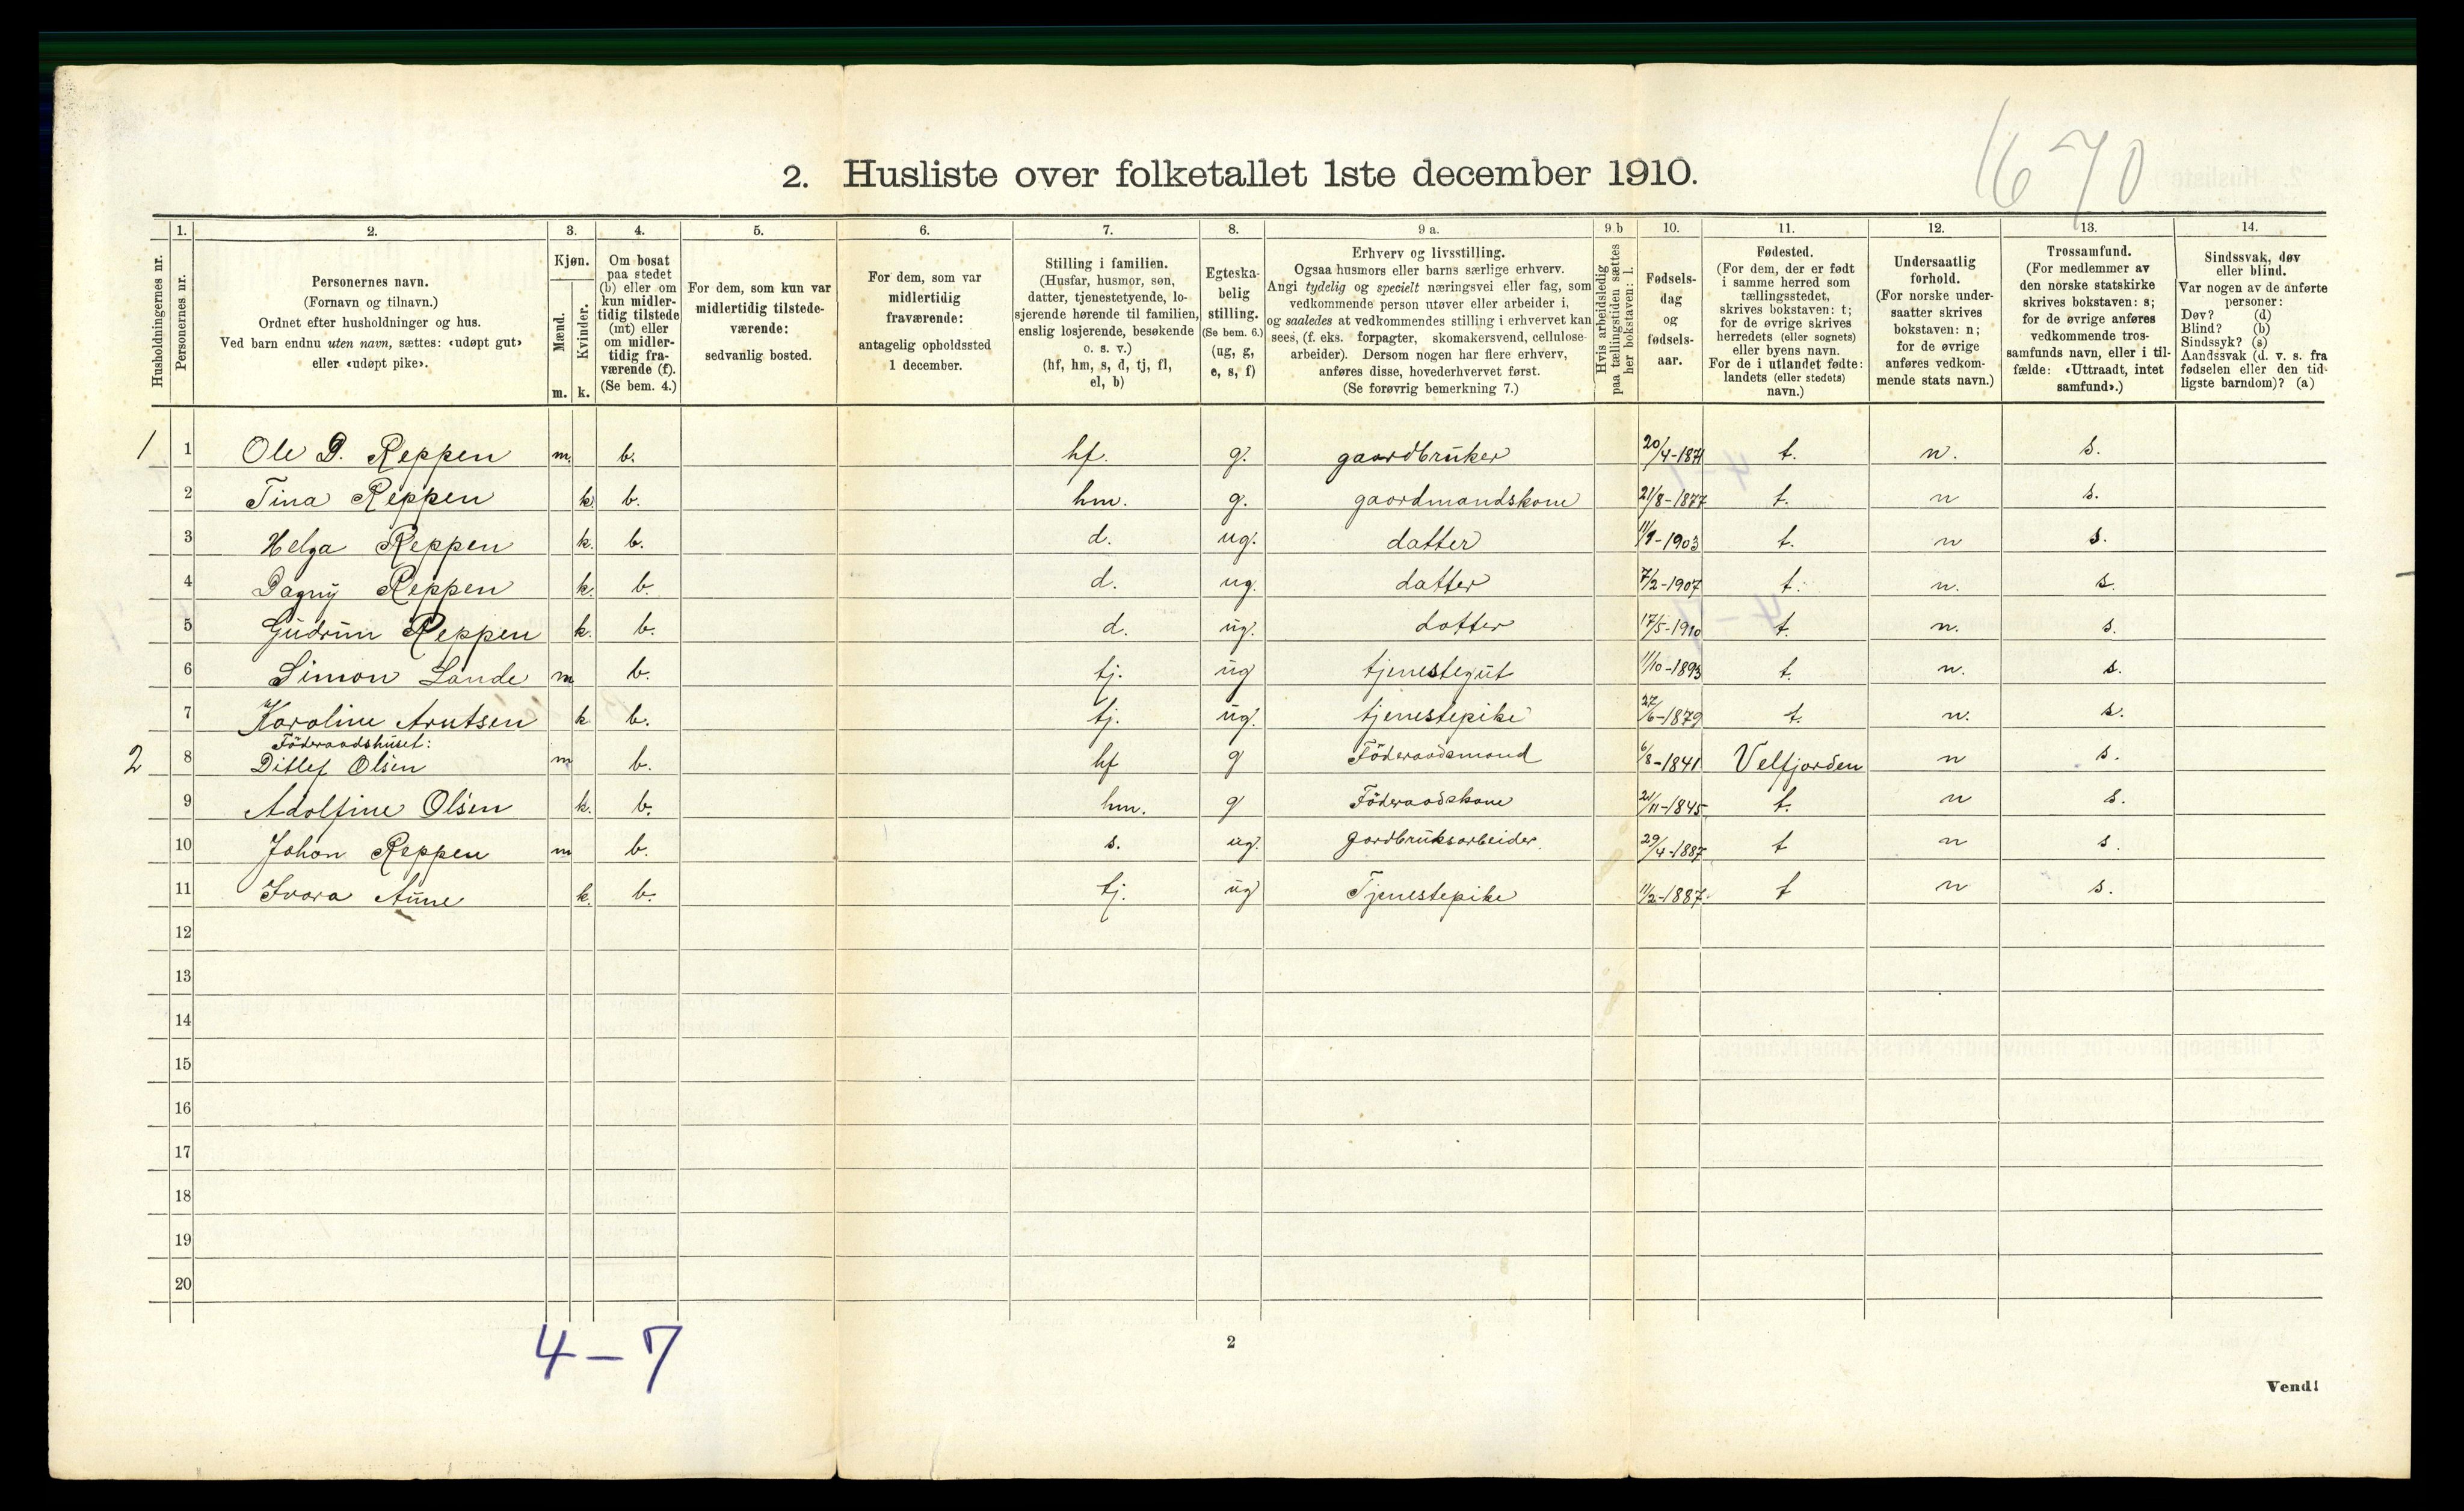 1670
2. Husliste over folketallet 1ste december 1910.
Husholdningernes nr.
1. Personernes nr.
2. Personernes navn.
(Fornavn og tilnavn.)
Ordnet efter husholdninger og hus.
Ved barn endnu uten navn, sættes: «udøpt gut»
eller «udøpt pike».
3. Kjøn.
Mænd. Kvinder.
m. k.
4. Om bosat
paa stedet
(b) eller om
kun midler-
tidig tilstede
(mt) eller
om midler-
tidig fra-
værende (f).
(Se bem. 4.)
5. For dem, som kun var
midlertidig tilstede-
værende:
sedvanlig bosted.
6. For dem, som var
midlertidig
fraværende:
antagelig opholdssted
1 december.
7. Stilling i familien.
(Husfar, husmor, søn,
datter, tjenestetyende, lo-
sjerende hørende til familien,
enslig losjerende, besøkende
o. s. v.)
(hf, hm, s, d, tj, fl,
el, b)
8. Egteska-
belig
stilling.
(Se bem. 6.)
(ug, g,
e, s, f)
9 a. Erhverv og livsstilling.
Ogsaa husmors eller barns særlige erhverv.
Angi tydelig og specielt næringsvei eller fag, som
vedkommende person utøver eller arbeider i,
og saaledes at vedkommendes stilling i erhvervet kan
sees, (f. eks. forpagter, skomakersvend, cellulose-
arbeider). Dersom nogen har flere erhverv,
anføres disse, hovederhvervet først.
(Se forøvrig bemerkning 7.)
9 b Hvis arbeidsledig
paa tællingstiden sættes
her bokstaven: l.
10. Fødsels-
dag
og
fødsels-
aar.
11. Fødested.
(For dem, der er født
i samme herred som
tællingsstedet,
skrives bokstaven: t;
for de øvrige skrives
herredets (eller sognets)
eller byens navn.
For de i utlandet fødte:
landets (eller stedets)
navn.)
12. Undersaatlig
forhold.
(For norske under-
saatter skrives
bokstaven: n;
for de øvrige
anføres vedkom-
mende stats navn.)
13. Trossamfund.
(For medlemmer av
den norske statskirke
skrives bokstaven: s;
for de øvrige anføres
vedkommende tros-
samfunds navn, eller i til-
fælde: «Uttraadt, intet
samfund».)
14. Sindssvak, døv
eller blind.
Var nogen av de anførte
personer:
Døv? (d)
Blind? (b)
Sindssyk? (s)
Aandssvak (d. v. s. fra
fødselen eller den tid-
ligste barndom)? (a)
1 1 Ole D. Reppen m. b. hf. g. gaardbruker 20/4-1871 t. n. s.
2 Tina Reppen k. b. hm. g. gaardmandskone 21/8-1877 t. n s.
3 Helga Reppen k. b. d. ug. datter 11/9-1903 t. n s.
4 Dagny Reppen k. b. d. ug. datter 7/2-1907 t. n. s.
5 Gudrun Reppen k. b. d. ug. datter 17/5-1910 t. n. s.
6 Simon Lande m b. tj. ug tjenestegut 11/10-1893 t. n. s.
7 Karoline Arntsen k b. tj. ug. tjenestepike 27/6-1879 t. n. s.
Föderaadshuset:
2 8 Ditlef Olsen m b. hf g Föderaadsmand 6/8-1841 Velfjorden n s.
9 Adolfine Olsen k. b. hm. g Föderaadskone 21/11-1845 t. n s.
10 Johan Reppen m b. s. ug. gardbruksarbeider. 29/4-1887 t n s.
11 Ivara Aune k. b. tj. ug Tjenestepike 11/2-1887 t n s.
12
13
14
15
16
17
18
19
20
4-7
2
Vend!